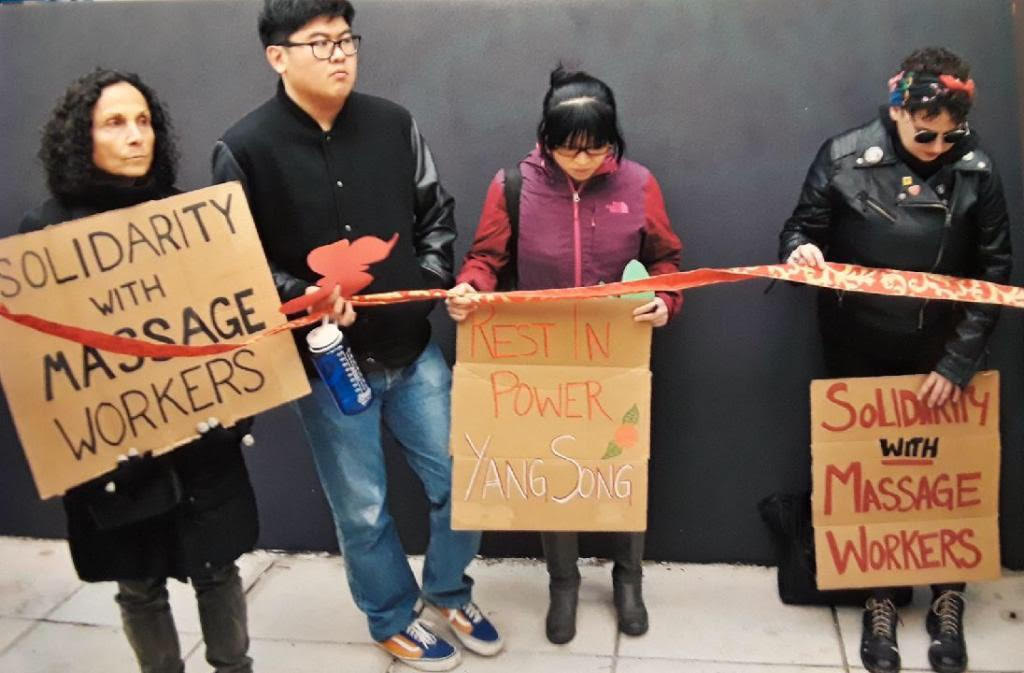 SOLIDARITY
WITH
MASSAGE
WORKERS
REST IN
POWER
YANG SONG
SOLIDARITY
WITH
MASSAGE
WORKERS